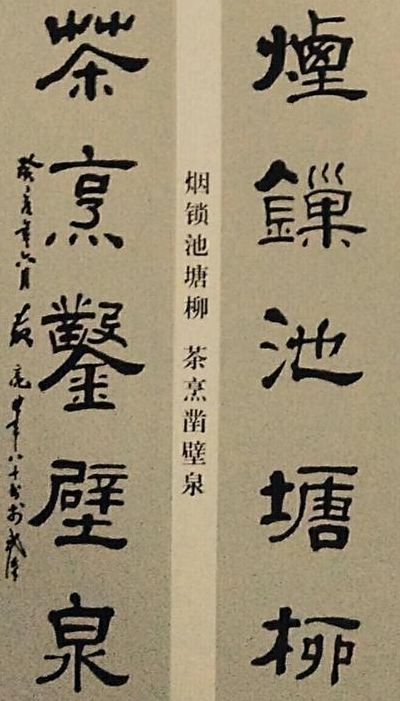 煙鏁池塘柳
烟锁池塘柳 茶烹凿壁泉
茶烹鑿壁泉
癸亥年六月